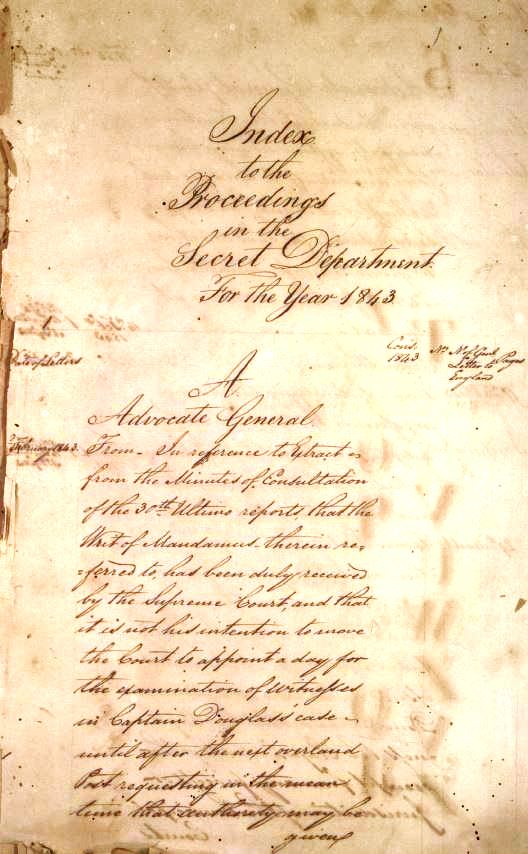 Index
to the
Proceedings
in the
Secret Department
For the Year 1843
1
Date of Letters
Cons.
1843
No
No of Genl
Letter to
England
Pages
A
Advocate General.
February 1843.
From - In reference to Extract =
from the Minutes of Consultation
of the 30th Ultimo reports, that the
Writ of Mandamus - therein re=
=ferred to, has been duly received
by the Supreme Court, and that
it is not his intention to move
the Court to appoint a day for
the examination of Witnesses
in Captain Douglass' case -
until after the next overland
Post requesting in the mean
time that authority may be
given